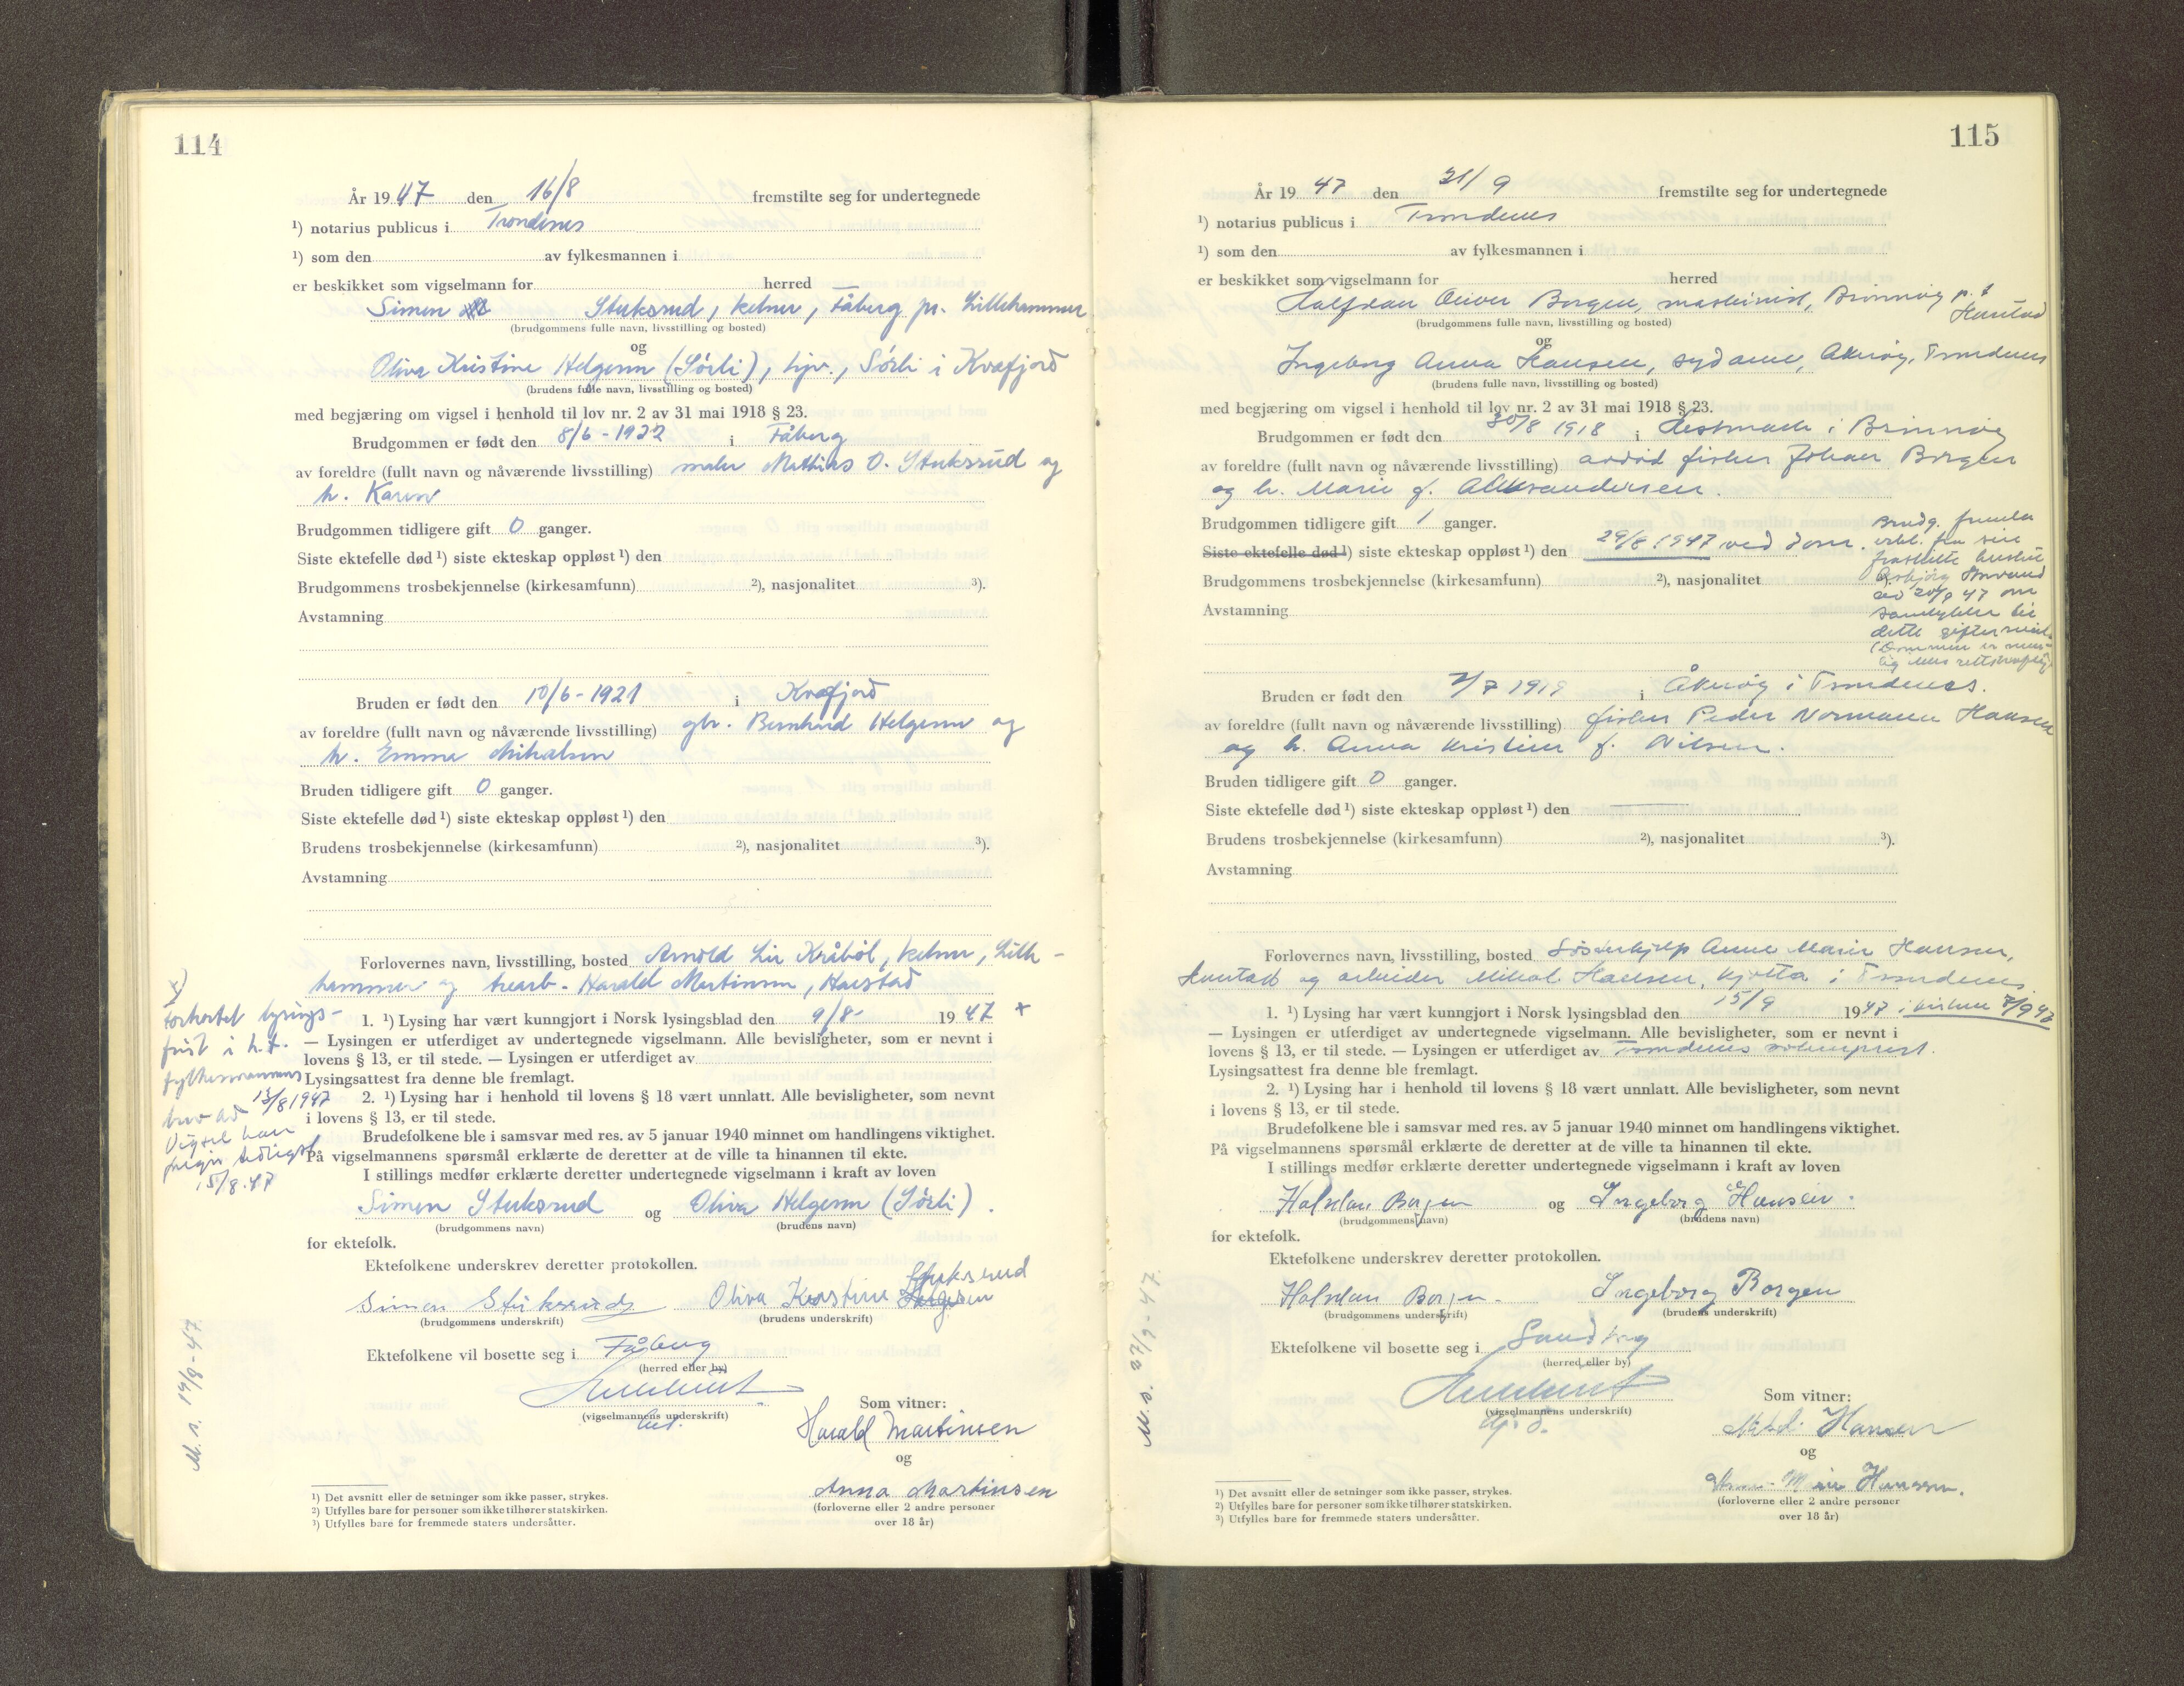 114
År 1947 den 16/8 fremstilte seg for undertegnede
¹) notarius publicus i Trondenes
¹) som den av fylkesmannen i
er beskikket som vigselmann for herred
Simen Stuksrud, kelner, Fåberg pr. Lillehammer
(brudgommens fulle navn, livsstilling og bosted)
og
Oliva Kristine Helgesen (Sørli), hjv., Sørli i Kvæfjord
(brudens fulle navn, livsstilling og bosted)
med begjæring om vigsel i henhold til lov nr. 2 av 31 mai 1918 § 23.
Brudgommen er født den 8/6-1922 i Fåberg
av foreldre (fullt navn og nåværende livsstilling) maler Mathias O. Stuksrud og
h. Karen
Brudgommen tidligere gift 0 ganger.
Siste ektefelle død ¹) siste ekteskap oppløst ¹) den
Brudgommens trosbekjennelse (kirkesamfunn) ²), nasjonalitet ³).
Avstamning
Bruden er født den 10/6-1921 i Kvæfjord
av foreldre (fullt navn og nåværende livsstilling) gbr. Bernhard Helgesen og
h. Emma Mikalsen
Bruden tidligere gift 0 ganger.
Siste ektefelle død ¹) siste ekteskap oppløst ¹) den
Brudens trosbekjennelse (kirkesamfunn) ²), nasjonalitet ³).
Avstamning
Forlovernes navn, livsstilling, bosted Arnold Lie Kråbøl, kelner, Lille-
hammer og trearb. Harald Martinsen, Harstad
1. ¹) Lysing har vært kunngjort i Norsk lysingsblad den 9/8- 1947 x
— Lysingen er utferdiget av undertegnede vigselmann. Alle bevisligheter, som er nevnt i
lovens § 13, er til stede. — Lysingen er utferdiget av
Lysingsattest fra denne ble fremlagt.
2. ¹) Lysing har i henhold til lovens § 18 vært unnlatt. Alle bevisligheter, som nevnt
i lovens § 13, er til stede.
Brudefolkene ble i samsvar med res. av 5 januar 1940 minnet om handlingens viktighet.
På vigselmannens spørsmål erklærte de deretter at de ville ta hinannen til ekte.
I stillings medfør erklærte deretter undertegnede vigselmann i kraft av loven
Simen Stuksrud og Oliva Helgesen (Sørli).
(brudgommens navn) (brudens navn)
for ektefolk.
Ektefolkene underskrev deretter protokollen.
Stuksrud
Simen Stuksrud Oliva Kristine Helgesen
(brudgommens underskrift) (brudens underskrift)
Ektefolkene vil bosette seg i Fåberg
(herred eller by)
(vigselmannens underskrift)
Som vitner:
Harald Martinsen
og
Anna Martinsen
(forloverne eller 2 andre personer
over 18 år)
x)
Forkortet lysings-
frist i h.t.
fylkesmannens
brev av 13/8 1947
Vigsel kan
foregå tidligst
15/8.47
M. s. 19/9-47
¹) Det avsnitt eller de setninger som ikke passer, strykes.
²) Utfylles bare for personer som ikke tilhører statskirken.
³) Utfylles bare for fremmede staters undersåtter.
115
År 1947 den 21/9 fremstilte seg for undertegnede
¹) notarius publicus i Trondenes
¹) som den av fylkesmannen i
er beskikket som vigselmann for herred
Halfdan Oliver Borgen, maskinist, Brønnøy p.t
Harstad
(brudgommens fulle navn, livsstilling og bosted)
og
Ingeborg Anna Hansen, sydame, Akerøy, Trondenes
(brudens fulle navn, livsstilling og bosted)
med begjæring om vigsel i henhold til lov nr. 2 av 31 mai 1918 § 23.
Brudgommen er født den 30/8 1918 i Hestmark i Brønnøy
av foreldre (fullt navn og nåværende livsstilling) avdød fisker Johan Borgen
og h. Marie f. Aleksandersen.
Brudgommen tidligere gift 1 ganger.
Siste ektefelle død ¹) siste ekteskap oppløst ¹) den 29/8 1947 ved dom.
Brudgommens trosbekjennelse (kirkesamfunn) ²), nasjonalitet ³).
Avstamning
Brudg. fremla
erkl. fra sin
fraskilte hustru
Asbjørg
av 20/9 47 om
samtykke til
dette giftermål.
Bruden er født den 2/7 1919 i Åkerøy i Trondenes.
av foreldre (fullt navn og nåværende livsstilling) fisker Peder Normann Hansen
og h. Anna Kristine f. Nilsen.
Bruden tidligere gift 0 ganger.
Siste ektefelle død ¹) siste ekteskap oppløst ¹) den
Brudens trosbekjennelse (kirkesamfunn) ²), nasjonalitet ³).
Avstamning
Forlovernes navn, livsstilling, bosted Søsterhjelp Anne Marie Hansen,
Harstad og arbeider Mikal Hansen, Kjøtta i Trondenes
1. ¹) Lysing har vært kunngjort i Norsk lysingsblad den 15/9 1947 i kirken 7/9 47
— Lysingen er utferdiget av undertegnede vigselmann. Alle bevisligheter, som er nevnt i
lovens § 13, er til stede. — Lysingen er utferdiget av Trondenes sokneprest.
Lysingsattest fra denne ble fremlagt.
2. ¹) Lysing har i henhold til lovens § 18 vært unnlatt. Alle bevisligheter, som nevnt
i lovens § 13, er til stede.
Brudefolkene ble i samsvar med res. av 5 januar 1940 minnet om handlingens viktighet.
På vigselmannens spørsmål erklærte de deretter at de ville ta hinannen til ekte.
I stillings medfør erklærte deretter undertegnede vigselmann i kraft av loven
Halfdan Borgen og Ingeborg Hansen.
(brudgommens navn) (brudens navn)
for ektefolk.
Ektefolkene underskrev deretter protokollen.
Halfdan Borgen Ingeborg Borgen
(brudgommens underskrift) (brudens underskrift)
Ektefolkene vil bosette seg i Sandtorg
(herred eller by)
(vigselmannens underskrift)
Som vitner:
Mikal Hansen
og
Anne-Marie Hanssen.
(forloverne eller 2 andre personer
over 18 år)
M. s. 27/9-47.
¹) Det avsnitt eller de setninger som ikke passer, strykes.
²) Utfylles bare for personer som ikke tilhører statskirken.
³) Utfylles bare for fremmede staters undersåtter.